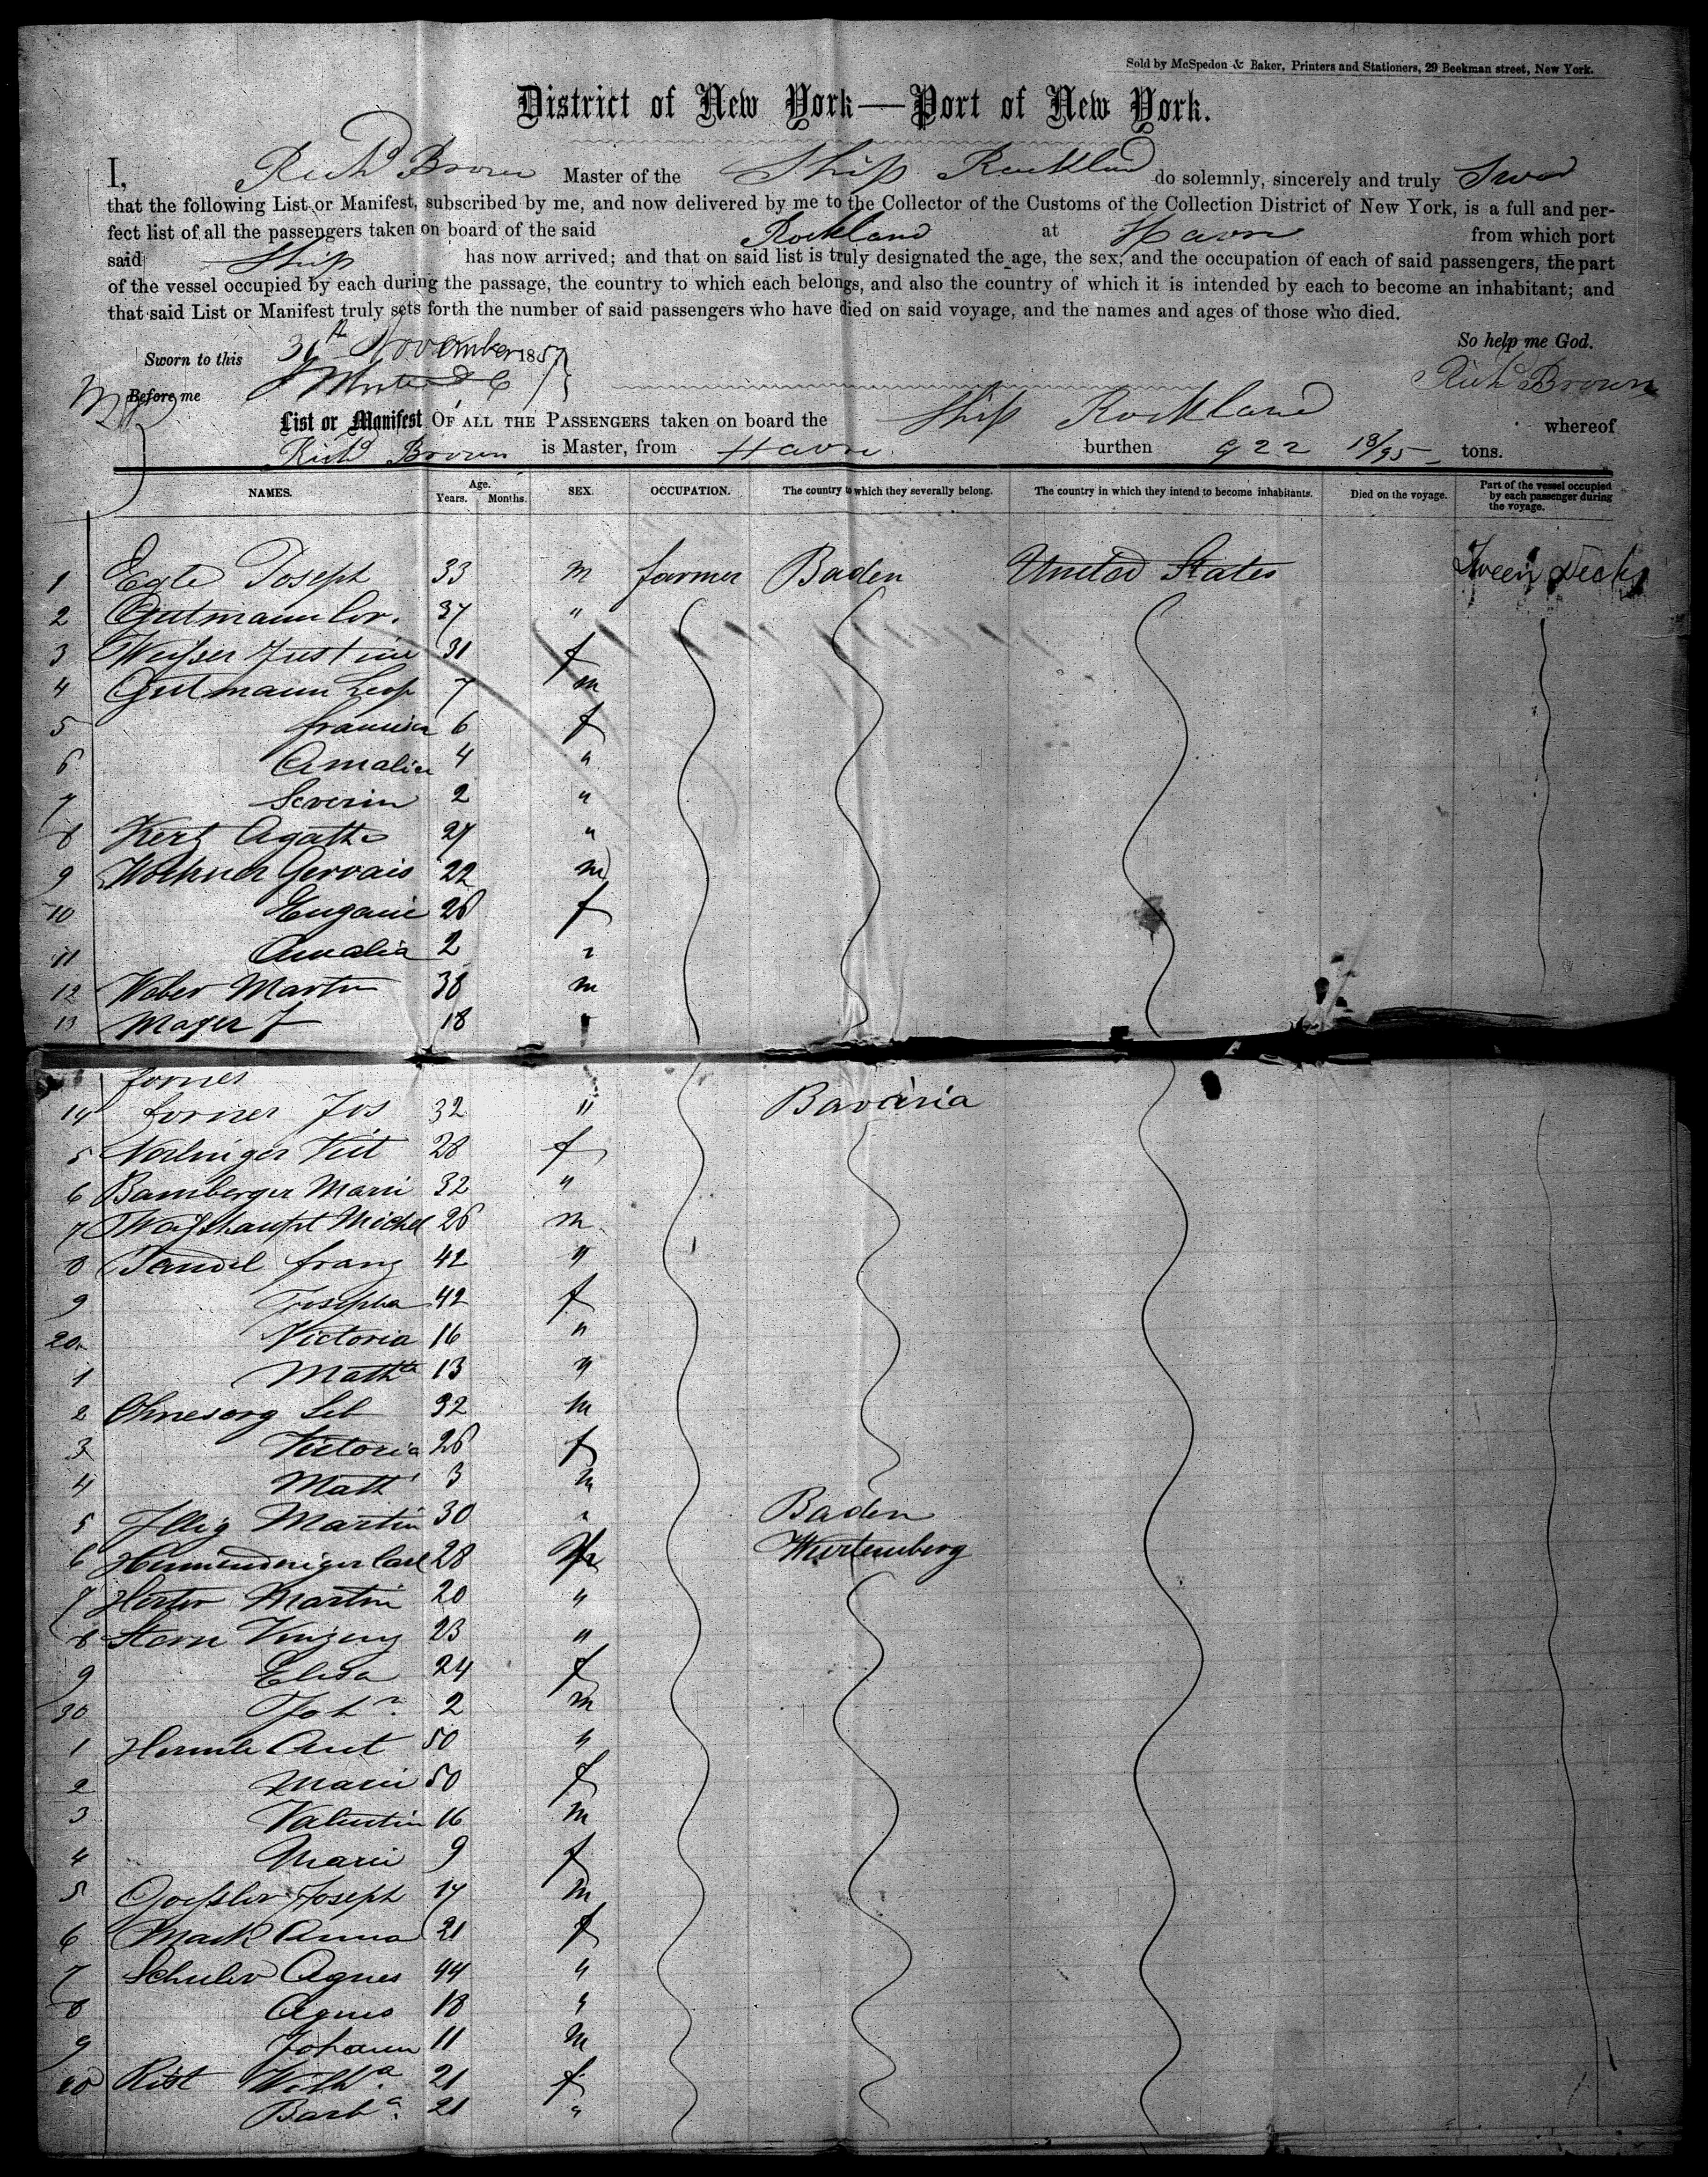 Sold by McSpedon & Baker, Printers and Stationers, 29 Beekman street, New York.
District of New York—Port of New York.
I, Richd Brown Master of the Ship Rockland do solemnly, sincerely and truly Swear
that the following List or Manifest, subscribed by me, and now delivered by me to the Collector of the Customs of the Collection District of New York, is a full and per-
fect list of all the passengers taken on board of the said Rockland at Havre from which port
said Ship has now arrived; and that on said list is truly designated the age, the sex, and the occupation of each of said passengers, the part
of the vessel occupied by each during the passage, the country to which each belongs, and also the country of which it is intended by each to become an inhabitant; and
that said List or Manifest truly sets forth the number of said passengers who have died on said voyage, and the names and ages of those who died.
So help me God.
Sworn to this November 1857
Richd Brown
Before me
List or Manifest OF ALL THE PASSENGERS taken on board the Ship Rockland whereof
Richd Brown is Master, from Havre burthen 922 18/95 tons.
NAMES. Age. Years. Months. SEX. OCCUPATION. The country to which they severally belong. The country in which they intend to become inhabitants. Died on the voyage. Part of the vessel occupied by each passenger during the voyage.
1 Egle Joseph 33 m farmer Baden United States Tween Decks
2 Gutmann Cor. 37 "
3 Weisser Justine 31 f
4 Gutmann Leop 7 m
5 Francisca 6 f
6 Amalia 4 "
7 Severin 2 "
8 Kertz Agatha 27 "
9 Gervais 22 m
10 Eugenie 26 f
11 Amalia 2 "
12 Weber Martin 38 m
13 Mayer J 18 "
forner
14 forner Jos 32 " Bavaria
5 Norlinger Vict 28 f
6 Bamberger Marie 32 "
7 Weishaupt Michel 26 m
8 Jaudel franz 42 "
9 Josepha 42 f
20 Victoria 16 "
1 Mathta 13 "
2 Ohnesorg Seb 32 m
3 Victoria 26 f
4 Math 3 m
5 Illig Martin 30 " Baden
6 Carl 28 m Wurtemberg
7 Herter Martin 20 "
8 Stern Vinzenz 23 "
9 Elisa 24 f
30 John. 2 m
1 Hermle Ant 50 "
2 Marie 50 f
3 Valentin 16 m
4 Marie 9 f
5 Goessler Joseph 17 m
6 Mack Anna 21 f
7 Schuler Agnes 44 "
8 Agnes 18 "
9 Johann 11 m
40 Rist Wilha. 21 f
Barba. 21 "